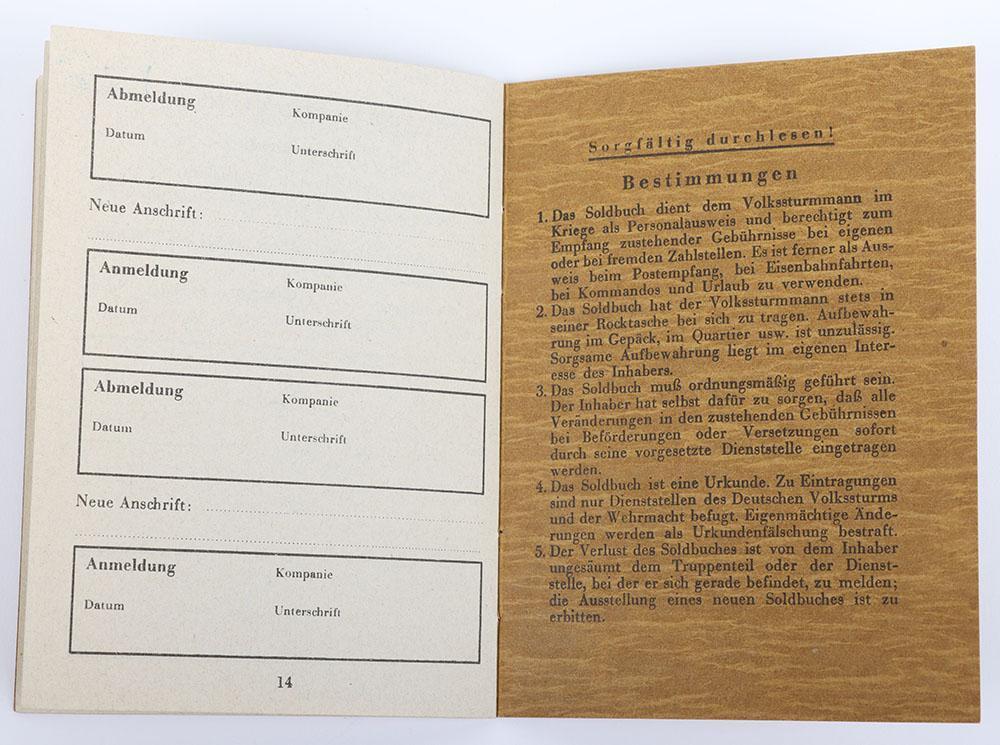 Abmeldung
Kompanie
Datum
Unterschrift
Neue Anschrift:
Anmeldung
Kompanie
Datum
Unterschrift
Abmeldung
Kompanie
Datum
Unterschrift
Neue Anschrift:
Anmeldung
Kompanie
Datum
Unterschrift
14
Sorgfältig durchlesen!
Bestimmungen
1. Das Soldbuch dient dem Volkssturmmann im
Kriege als Personalausweis und berechtigt zum
Empfang zustehender Gebührnisse bei eigenen
oder bei fremden Zahlstellen. Es ist ferner als Aus-
weis beim Postempfang, bei Eisenbahnfahrten,
bei Kommandos und Urlaub zu verwenden.
2. Das Soldbuch hat der Volkssturmmann stets in
seiner Rocktasche bei sich zu tragen. Aufbewah-
rung im Gepäck, im Quartier usw. ist unzulässig.
Sorgsame Aufbewahrung liegt im eigenen Inter-
esse des Inhabers.
3. Das Soldbuch muß ordnungsmäßig geführt sein.
Der Inhaber hat selbst dafür zu sorgen, daß alle
Veränderungen in den zustehenden Gebührnissen
bei Beförderungen oder Versetzungen sofort
durch seine vorgesetzte Dienststelle eingetragen
werden.
4. Das Soldbuch ist eine Urkunde. Zu Eintragungen
sind nur Dienststellen des Deutschen Volkssturms
und der Wehrmacht befugt. Eigenmächtige Ände-
rungen werden als Urkundenfälschung bestraft.
5. Der Verlust des Soldbuches ist von dem Inhaber
ungesäumt dem Truppenteil oder der Dienst-
stelle, bei der er sich gerade befindet, zu melden;
die Ausstellung eines neuen Soldbuches ist zu
erbitten.